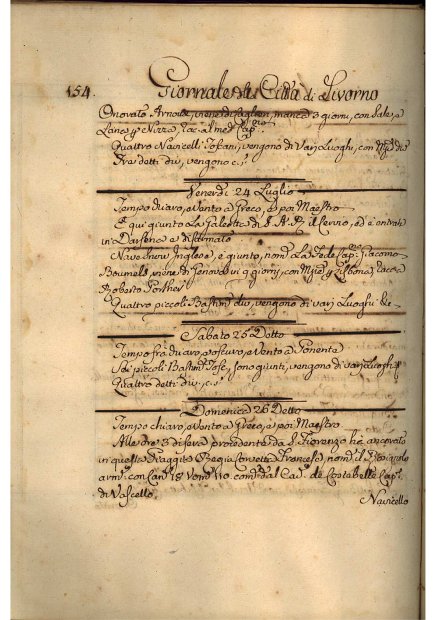 154. Giornale di Città di Livorno
Onorato Arnoux, viene di Caglieri, manca giorni, con Sale, e
Lana p Nizza, rac. al med. Cap.
Quattro Navicelli Toscani, vengono di Varj Luoghi, con
Tre detti div. vengono c. s.
Venerdi 24 Luglio
Tempo chiaro, e Vento a Greco, e poi Maestro
È qui giunto La Galeotta di S. A. R. il Cervio, ed è entrata
in Darsena e disarmato
Nave Inglese, è giunto, nom. La Fede Cap. Giacomo
viene di Genova in 9 giorni, con Mzie p Lisbona, rac. a
Roberto Porther
Quattro piccoli Bastim. div. vengono di varj Luoghi &c
Sabato 25 Detto
Tempo frà chiaro, e oscuro, e Vento a Ponente
Sei piccoli Bastim. Tosc. sono giunti, vengono di varj Luoghi
Quattro detti div. c. s.
Domenica 26 Detto
Tempo chiaro, e Vento a Greco, e poi Maestro
Alle ore 3 di sera procedente da S. Fiorenzo hà ancorato
in questa Piaggia Regia Corvetta Francese, nom. il
arm. con Can. 18 Vom. 110 com. dal Cav. de Costabelle Cap.
di Vascello.
Navicello